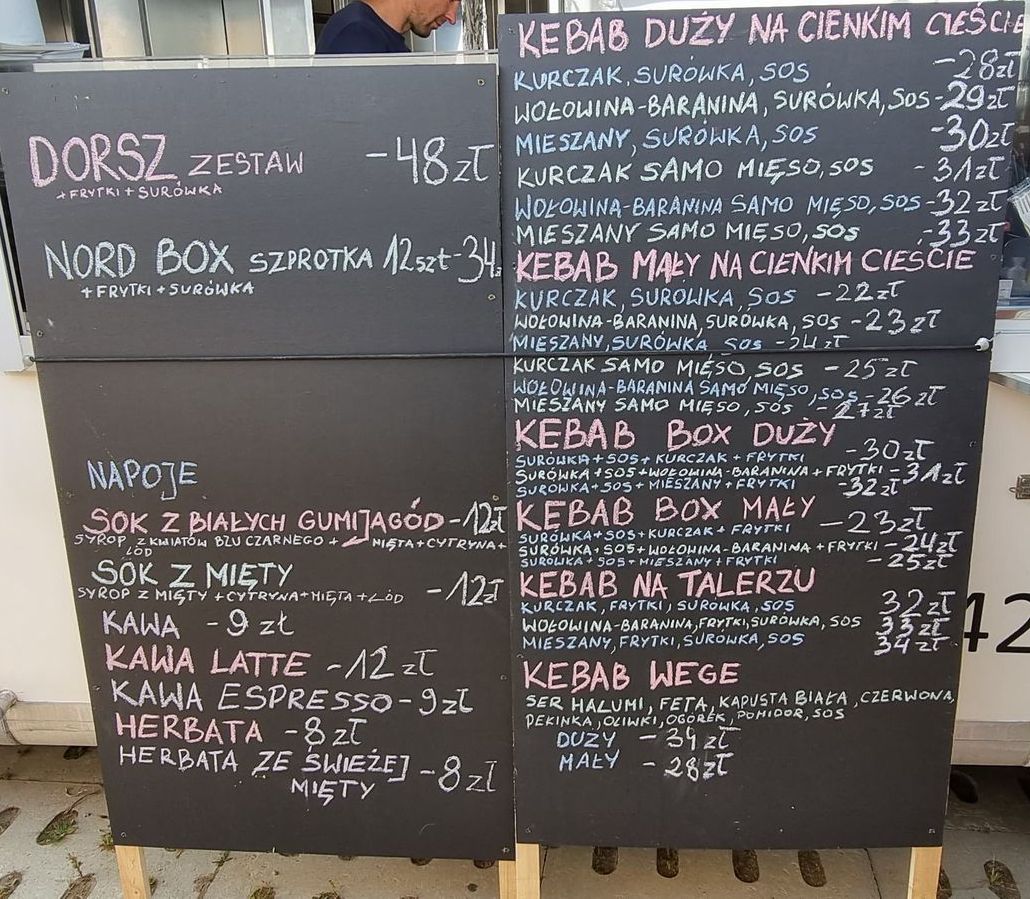 DORSZ ZESTAW -48 zł
+FRYTKI+SURÓWKA
NORD BOX SZPROTKA 12szt-34
+FRYTKI+SURÓWKA
NAPOJE
SOK Z BIAŁYCH GUMIJAGÓD-12zł
SYROP Z KWIATÓW BZU CZARNEGO + MIĘTA+CYTRYNA+
LÓD
SOK Z MIĘTY
SYROP Z MIĘTY +CYTRYNA+MIĘTA +LÓD -12zł
KAWA -9 zł
KAWA LATTE -12 zł
KAWA ESPRESSO-9zł
HERBATA -8zł
HERBATA ZE ŚWIEŻEJ
MIĘTY -8zł
KEBAB DUŻY NA CIENKIM CIEŚCIE
KURCZAK, SURÓWKA, SOS -28zł
WOŁOWINA-BARANINA, SURÓWKA, SOS-29zł
MIESZANY, SURÓWKA, SOS -30zł
KURCZAK SAMO MIĘSO, SOS - 31zł
WOŁOWINA-BARANINA SAMO MIĘSO, SOS-32zł
MIESZANY SAMO MIĘSO, SOS -33zł
KEBAB MAŁY NA CIENKIM CIEŚCIE
KURCZAK, SURÓWKA, SOS -22zł
WOŁOWINA-BARANINA, SURÓWKA, SOS -23zł
MIESZANY, SURÓWKA SOS -24zł
KURCZAK SAMO MIĘSO SOS -25zł
WOŁOWINA-BARANINA SAMO MIĘSO, SOS-26zł
MIESZANY SAMO MIĘSO, SOS -27zł
KEBAB BOX DUŻY
SURÓWKA+SOS+KURCZAK+FRYTKI -30zł
SURÓWKA+SOS+WOŁOWINA-BARANINA+FRYTKI -31zł
SURÓWKA+SOS+MIESZANY+FRYTKI -32zł
KEBAB BOX MAŁY
SURÓWKA+SOS+KURCZAK+FRYTKI -23zł
SURÓWKA+SOS+WOŁOWINA-BARANINA+FRYTKI -24zł
SURÓWKA+SOS+MIESZANY+FRYTKI -25zł
KEBAB NA TALERZU
KURCZAK, FRYTKI, SURÓWKA, SOS 32zł
WOŁOWINA-BARANINA, FRYTKI, SURÓWKA, SOS 33zł
MIESZANY, FRYTKI, SURÓWKA, SOS 34zł
KEBAB WEGE
SER HALUMI, FETA, KAPUSTA BIAŁA, CZERWONA,
PEKINKA, OLIWKI, OGÓREK, POMIDOR, SOS
DUŻY -34zł
MAŁY -28zł
42